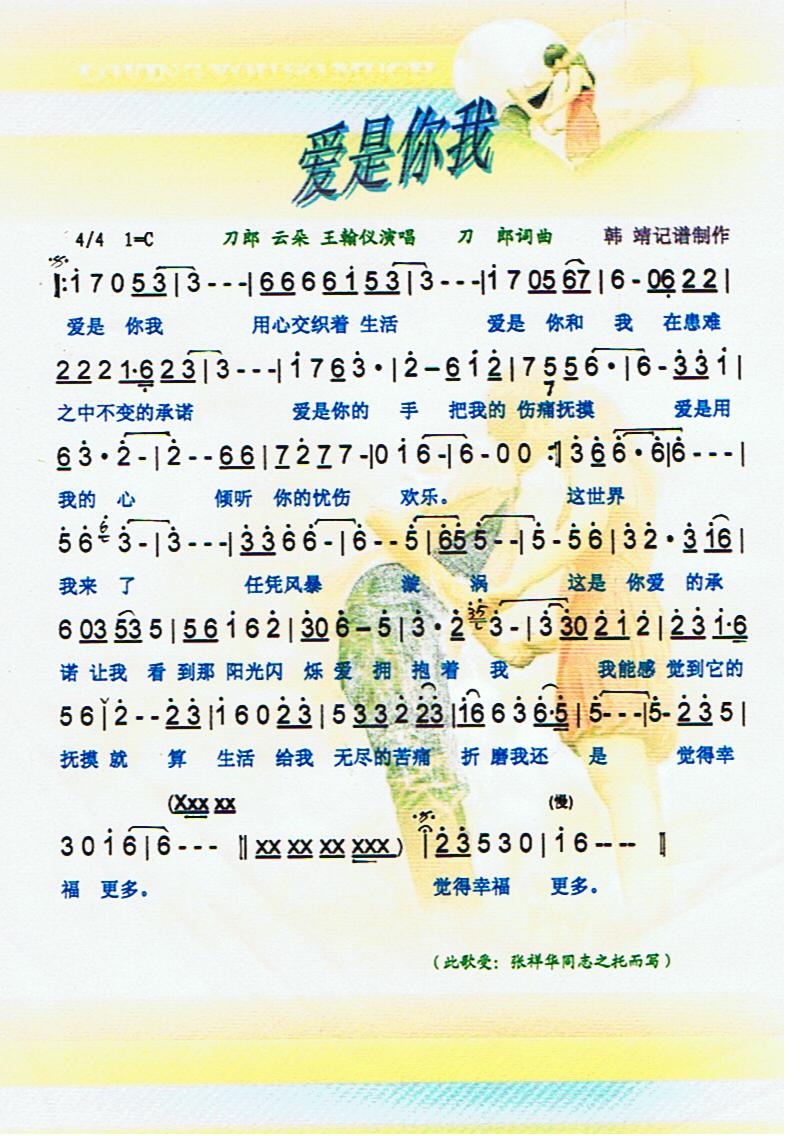 LOVING YOU SO MUCH
爱是你我
4/4 1=C 刀郎 云朵 王翰仪演唱 刀 郎词曲 韩 靖记谱制作
‖:i 7 0 5 3 | 3 - - - | 6 6 6 6 i 5 3 | 3 - - - | i 7 0 5 6 7 | 6 - 0 6 2 2 |
爱是 你我 用心交织着 生活 爱是 你和 我 在患难
2 2 2 1·6 2 3 | 3 - - - | i 7 6 3 · | 2 – 6 i 2 | 7 5 5 6 · | 6 - 3 3 i |
之中不变的承诺 爱是你的 手 把我的 伤痛抚摸 爱是用
6 3 · 2 - | 2 - - 6 6 | 7 2 7 7 - | 0 i 6 - | 6 - 0 0 :‖ 3 6 6 · 6 | 6 - - - |
我的 心 倾听 你的忧伤 欢乐。 这世界
5 6 3 - | 3 - - - | 3 3 6 6 - | 6 - - 5 | 6 5 5 - - | 5 - 5 6 | 3 2 · 3 i 6 |
我来 了 任凭风暴 漩 涡 这是 你爱 的承
6 0 3 5 3 5 | 5 6 i 6 2 | 3 0 6 – 5 | 3 · 2 3 - | 3 3 0 2 1 2 | 2 3 1·6 |
诺 让我 看 到那 阳光闪 烁 爱 拥 抱 着 我 我能感 觉到它的
5 6 i 2 - - 2 3 | i 6 0 2 3 | 5 3 3 2 2 3 | i 6 6 3 6·5 | 5 - - - | 5 - 2 3 5 |
抚摸 就 算 生活 给我 无尽的苦痛 折 磨我还 是 觉得幸
(Xxx xx (慢)
3 0 i 6 | 6 - - - ‖ xx xx xx xxx ) i 2 3 5 3 0 | i 6 -- -- ‖
福 更多。 觉得幸福 更多。
（此歌受：张祥华同志之托而写）